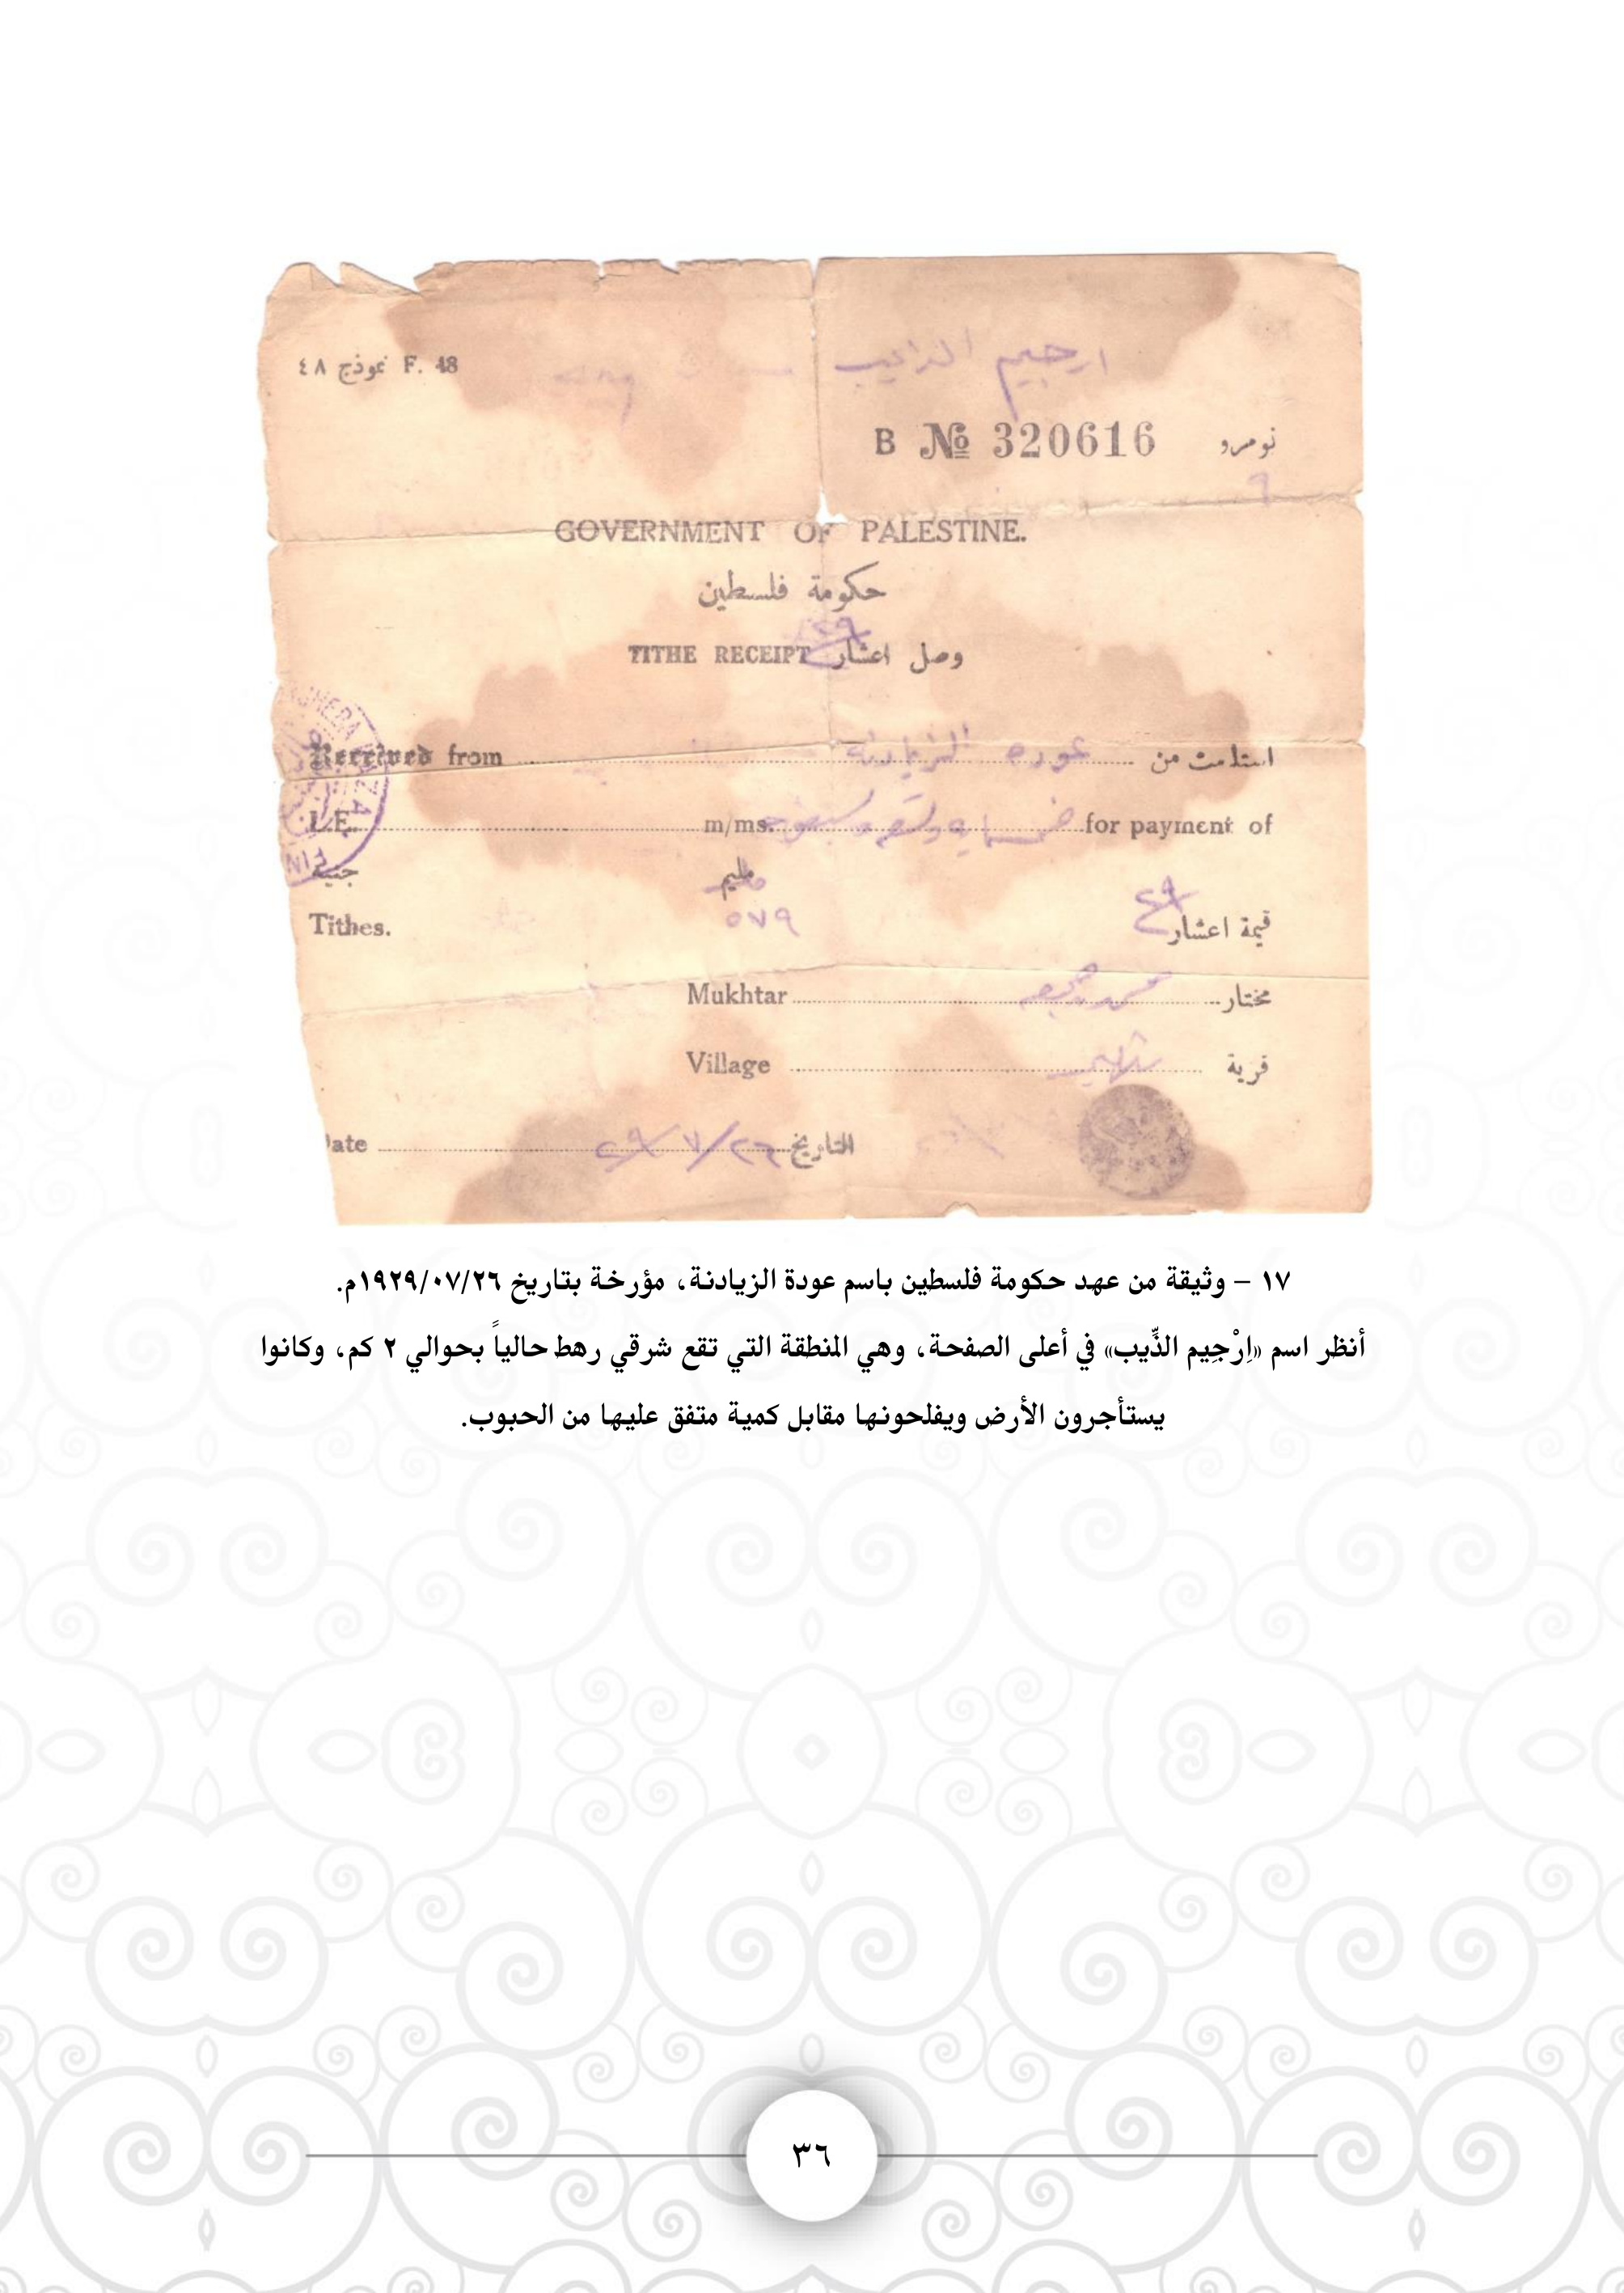 ارجيم الذيب
نموذج ٤٨ F. 48
B № 320616 نومرو
GOVERNMENT OF PALESTINE.
حكومة فلسطين
TITHE RECEIPT وصل اعشار ٢٩
Received from عوده الزيادنه استلمت من
L.E. m/ms. خمسمايه وتسعه وسبعون for payment of
جنيه مليم
Tithes. ٥٧٩ قيمة اعشار ٢٩
Mukhtar مختار
Village قرية
Date ٢٦/٧/٢٩ التاريخ
١٧ – وثيقة من عهد حكومة فلسطين باسم عودة الزيادنة، مؤرخة بتاريخ ١٩٢٩/٠٧/٢٦م.
أنظر اسم «اِرْجِيم الذِّيب» في أعلى الصفحة، وهي المنطقة التي تقع شرقي رهط حالياً بحوالي ٢ كم، وكانوا
يستأجرون الأرض ويفلحونها مقابل كمية متفق عليها من الحبوب.
٣٦